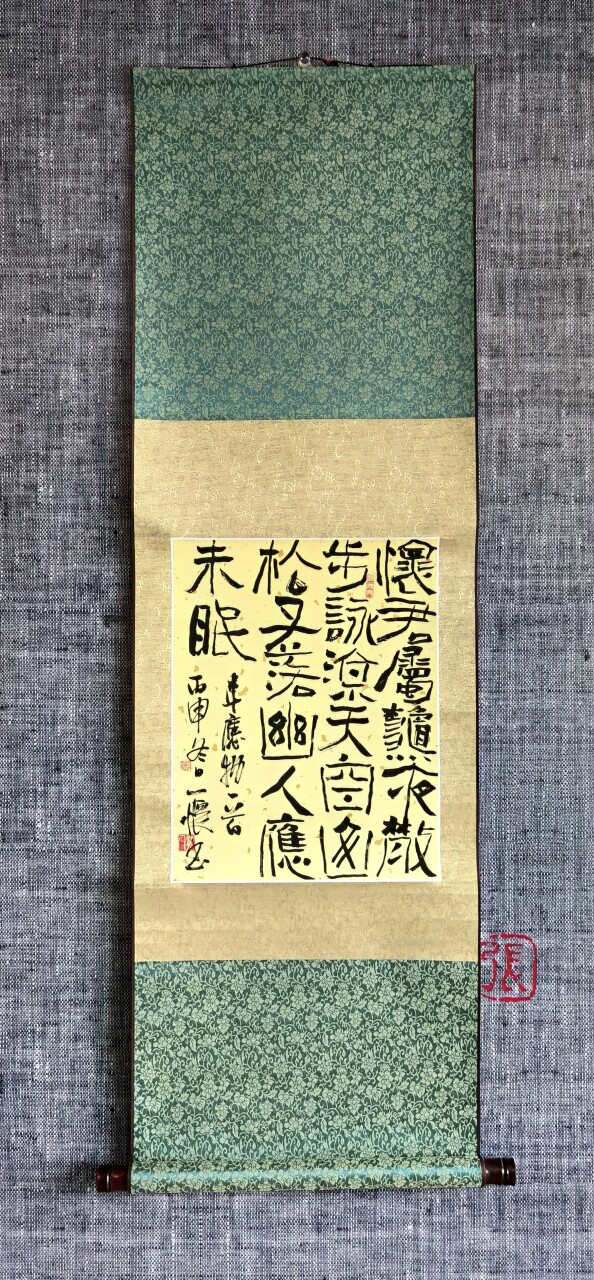 懷君屬龝夜散
步詠涼天空山
松子落幽人應
未眠
韋應物一首
丙申冬日一書
張